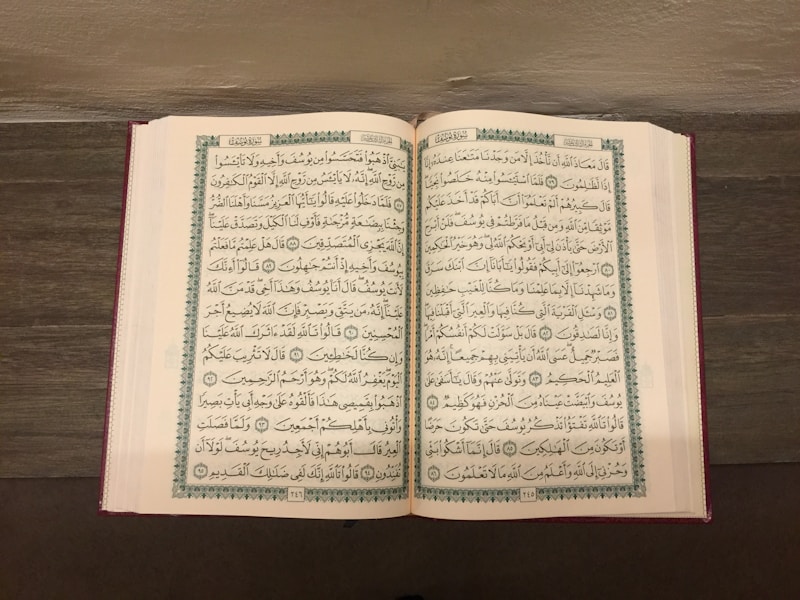 سُورَةُ يُوسُفَ
قَالَ مَعَاذَ ٱللَّهِ أَن نَّأْخُذَ إِلَّا مَن وَجَدْنَا مَتَٰعَنَا عِندَهُۥٓ إِنَّآ
إِذًا لَّظَٰلِمُونَ ٧٩ فَلَمَّا ٱسْتَيْـَٔسُوا۟ مِنْهُ خَلَصُوا۟ نَجِيًّا
قَالَ كَبِيرُهُمْ أَلَمْ تَعْلَمُوٓا۟ أَنَّ أَبَاكُمْ قَدْ أَخَذَ عَلَيْكُم
مَّوْثِقًا مِّنَ ٱللَّهِ وَمِن قَبْلُ مَا فَرَّطتُمْ فِى يُوسُفَ ۖ فَلَنْ أَبْرَحَ
ٱلْأَرْضَ حَتَّىٰ يَأْذَنَ لِىٓ أَبِىٓ أَوْ يَحْكُمَ ٱللَّهُ لِى ۖ وَهُوَ خَيْرُ ٱلْحَٰكِمِينَ
٨٠ ٱرْجِعُوٓا۟ إِلَىٰٓ أَبِيكُمْ فَقُولُوا۟ يَٰٓأَبَانَآ إِنَّ ٱبْنَكَ سَرَقَ
وَمَا شَهِدْنَآ إِلَّا بِمَا عَلِمْنَا وَمَا كُنَّا لِلْغَيْبِ حَٰفِظِينَ
٨١ وَسْـَٔلِ ٱلْقَرْيَةَ ٱلَّتِى كُنَّا فِيهَا وَٱلْعِيرَ ٱلَّتِىٓ أَقْبَلْنَا فِيهَا ۖ
وَإِنَّا لَصَٰدِقُونَ ٨٢ قَالَ بَلْ سَوَّلَتْ لَكُمْ أَنفُسُكُمْ أَمْرًا ۖ
فَصَبْرٌ جَمِيلٌ ۖ عَسَى ٱللَّهُ أَن يَأْتِيَنِى بِهِمْ جَمِيعًا ۚ إِنَّهُۥ هُوَ
ٱلْعَلِيمُ ٱلْحَكِيمُ ٨٣ وَتَوَلَّىٰ عَنْهُمْ وَقَالَ يَٰٓأَسَفَىٰ عَلَىٰ
يُوسُفَ وَٱبْيَضَّتْ عَيْنَاهُ مِنَ ٱلْحُزْنِ فَهُوَ كَظِيمٌ ٨٤
قَالُوا۟ تَٱللَّهِ تَفْتَؤُا۟ تَذْكُرُ يُوسُفَ حَتَّىٰ تَكُونَ حَرَضًا
أَوْ تَكُونَ مِنَ ٱلْهَٰلِكِينَ ٨٥ قَالَ إِنَّمَآ أَشْكُوا۟ بَثِّى
وَحُزْنِىٓ إِلَى ٱللَّهِ وَأَعْلَمُ مِنَ ٱللَّهِ مَا لَا تَعْلَمُونَ ٨٦
٢٤٥
سُورَةُ يُوسُفَ
يَٰبَنِىَّ ٱذْهَبُوا۟ فَتَحَسَّسُوا۟ مِن يُوسُفَ وَأَخِيهِ وَلَا تَا۟يْـَٔسُوا۟
مِن رَّوْحِ ٱللَّهِ ۖ إِنَّهُۥ لَا يَا۟يْـَٔسُ مِن رَّوْحِ ٱللَّهِ إِلَّا ٱلْقَوْمُ ٱلْكَٰفِرُونَ
٨٧ فَلَمَّا دَخَلُوا۟ عَلَيْهِ قَالُوا۟ يَٰٓأَيُّهَا ٱلْعَزِيزُ مَسَّنَا وَأَهْلَنَا ٱلضُّرُّ
وَجِئْنَا بِبِضَٰعَةٍ مُّزْجَىٰةٍ فَأَوْفِ لَنَا ٱلْكَيْلَ وَتَصَدَّقْ عَلَيْنَآ ۖ
إِنَّ ٱللَّهَ يَجْزِى ٱلْمُتَصَدِّقِينَ ٨٨ قَالَ هَلْ عَلِمْتُم مَّا فَعَلْتُم
بِيُوسُفَ وَأَخِيهِ إِذْ أَنتُمْ جَٰهِلُونَ ٨٩ قَالُوٓا۟ أَءِنَّكَ
لَأَنتَ يُوسُفُ ۖ قَالَ أَنَا۠ يُوسُفُ وَهَٰذَآ أَخِى ۖ قَدْ مَنَّ ٱللَّهُ
عَلَيْنَآ ۖ إِنَّهُۥ مَن يَتَّقِ وَيَصْبِرْ فَإِنَّ ٱللَّهَ لَا يُضِيعُ أَجْرَ
ٱلْمُحْسِنِينَ ٩٠ قَالُوا۟ تَٱللَّهِ لَقَدْ ءَاثَرَكَ ٱللَّهُ عَلَيْنَا
وَإِن كُنَّا لَخَٰطِـِٔينَ ٩١ قَالَ لَا تَثْرِيبَ عَلَيْكُمُ
ٱلْيَوْمَ ۖ يَغْفِرُ ٱللَّهُ لَكُمْ ۖ وَهُوَ أَرْحَمُ ٱلرَّٰحِمِينَ ٩٢
ٱذْهَبُوا۟ بِقَمِيصِى هَٰذَا فَأَلْقُوهُ عَلَىٰ وَجْهِ أَبِى يَأْتِ بَصِيرًا
وَأْتُونِى بِأَهْلِكُمْ أَجْمَعِينَ ٩٣ وَلَمَّا فَصَلَتِ
ٱلْعِيرُ قَالَ أَبُوهُمْ إِنِّى لَأَجِدُ رِيحَ يُوسُفَ ۖ لَوْلَآ أَن
تُفَنِّدُونِ ٩٤ قَالُوا۟ تَٱللَّهِ إِنَّكَ لَفِى ضَلَٰلِكَ ٱلْقَدِيمِ ٩٥
٢٤٦